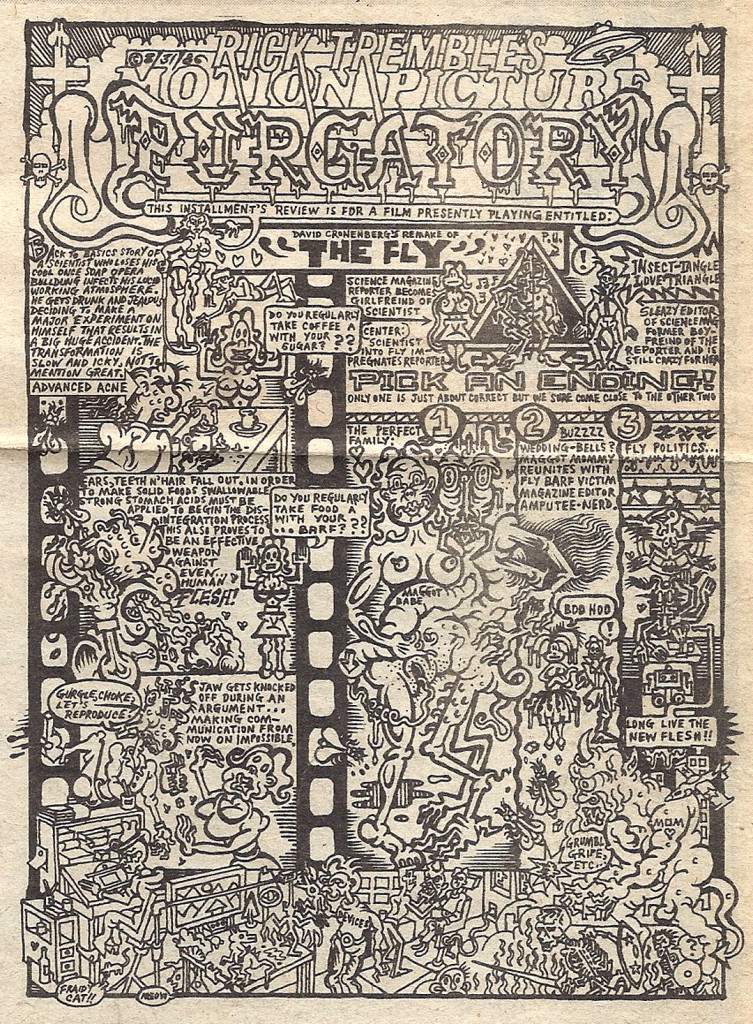 ©8/31/86
RICK TREMBLE'S
MOTION PICTURE
PURGATORY
THIS INSTALLMENT'S REVIEW IS FOR A FILM PRESENTLY PLAYING ENTITLED:
DAVID CRONENBERG'S REMAKE OF
"THE FLY"
P.U.
!
BACK TO BASICS STORY OF
A SCIENTIST WHO LOSES HIS
COOL ONCE SOAP OPERA
BULLDUNG INFECTS HIS LUCID
WORKING ATMOSPHERE.
HE GETS DRUNK AND JEALOUS
DECIDING TO MAKE A
MAJOR EXPERIMENT ON
HIMSELF THAT RESULTS IN
A BIG HUGE ACCIDENT. THE
TRANSFORMATION IS
SLOW AND ICKY, NOT TO
MENTION GREAT!
ADVANCED ACNE
DO YOU REGULARLY
TAKE COFFEE A
WITH YOUR
SUGAR???
SCIENCE MAGAZINE
REPORTER BECOMES
GIRLFREIND OF
SCIENTIST
CENTER:
SCIENTIST
INTO FLY IM
PREGNATES REPORTER
INSECT-TANGLE
LOVE TRIANGLE
SLEAZY EDITOR
OF SCIENCE MAG
FORMER BOY-
FREIND OF THE
REPORTER AND IS
STILL CRAZY FOR HER
PICK AN ENDING!
ONLY ONE IS JUST ABOUT CORRECT BUT WE SURE COME CLOSE TO THE OTHER TWO
EARS, TEETH N' HAIR FALL OUT. IN ORDER
TO MAKE SOLID FOODS SWALLOWABLE
STRONG STOMACH ACIDS MUST BE
APPLIED TO BEGIN THE DIS-
INTEGRATION PROCESS.
THIS ALSO PROVES TO
BE AN EFFECTIVE
WEAPON
AGAINST
EVEN
HUMAN
FLESH!
DO YOU REGULARLY
TAKE FOOD A
WITH YOUR
...BARF???
GURGLE, CHOKE,
LET'S
REPRODUCE.
JAW GETS KNOCKED
OFF DURING AN
ARGUMENT...
MAKING COM-
MUNICATION FROM
NOW ON IMPOSSIBLE
THE PERFECT
FAMILY:
1
MAGGOT
BABE
2
BUZZZZ
WEDDING-BELLS?
MAGGOT MOMMY
REUNITES WITH
FLY BARF VICTIM
MAGAZINE EDITOR
AMPUTEE-NERD.
BOO HOO
!
3
FLY POLITICS...
LONG LIVE THE
NEW FLESH!!
MOM
GRUMBL
GRIPE,
ETC.
DEVICES
FRAIDY
CAT!!
MEOW